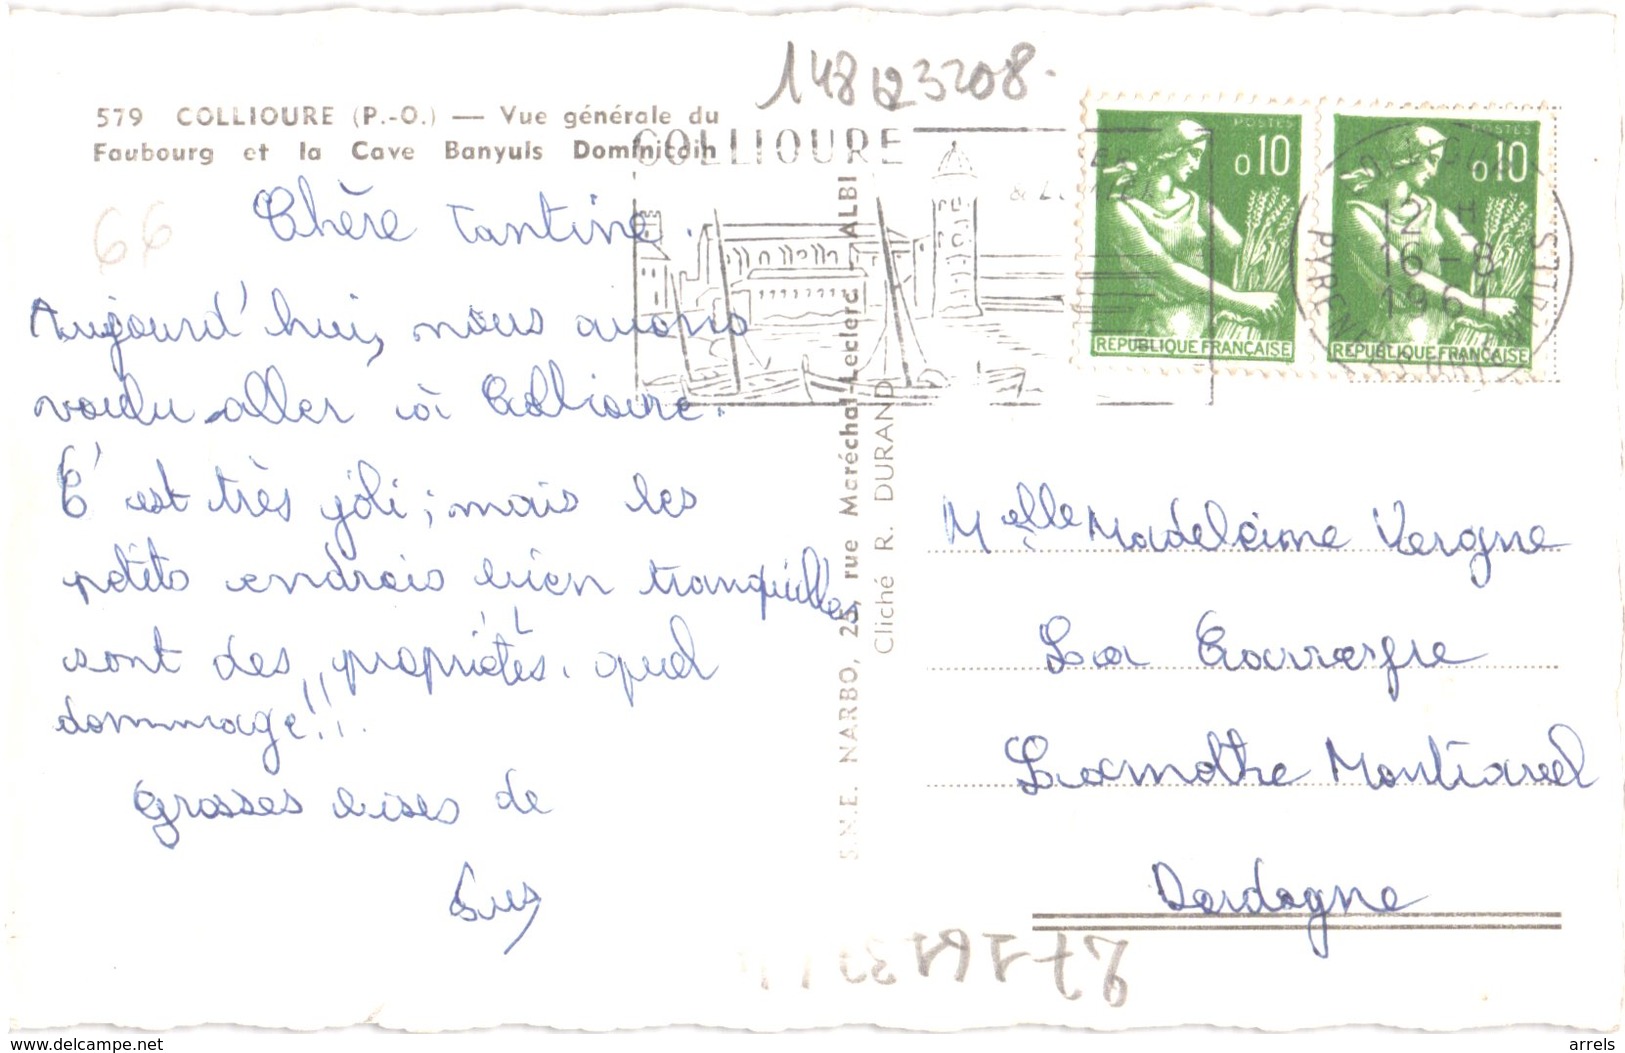 148123208.
579 COLLIOURE (P.-O.) — Vue générale du
Faubourg et la Cave Banyuls Dominicain
COLLIOURE
66
POSTES
0,10
REPUBLIQUE FRANÇAISE
POSTES
0,10
REPUBLIQUE FRANÇAISE
12 H
16-8
1961
Chère Tantine.
Aujourd'hui, nous avons
voulu aller à Collioure.
C'est très joli; mais les
petits endrois bien tranquilles
sont des propriétés. quel
dommage!!!
Grosses bises de
S.N.E. NARBO, 25, rue Maréchal-Leclerc, ALBI
Cliché R. DURAND
Melle Madeleine Vergne
La
Lamothe Montravel
Dordogne
www.delcampe.net
arrels